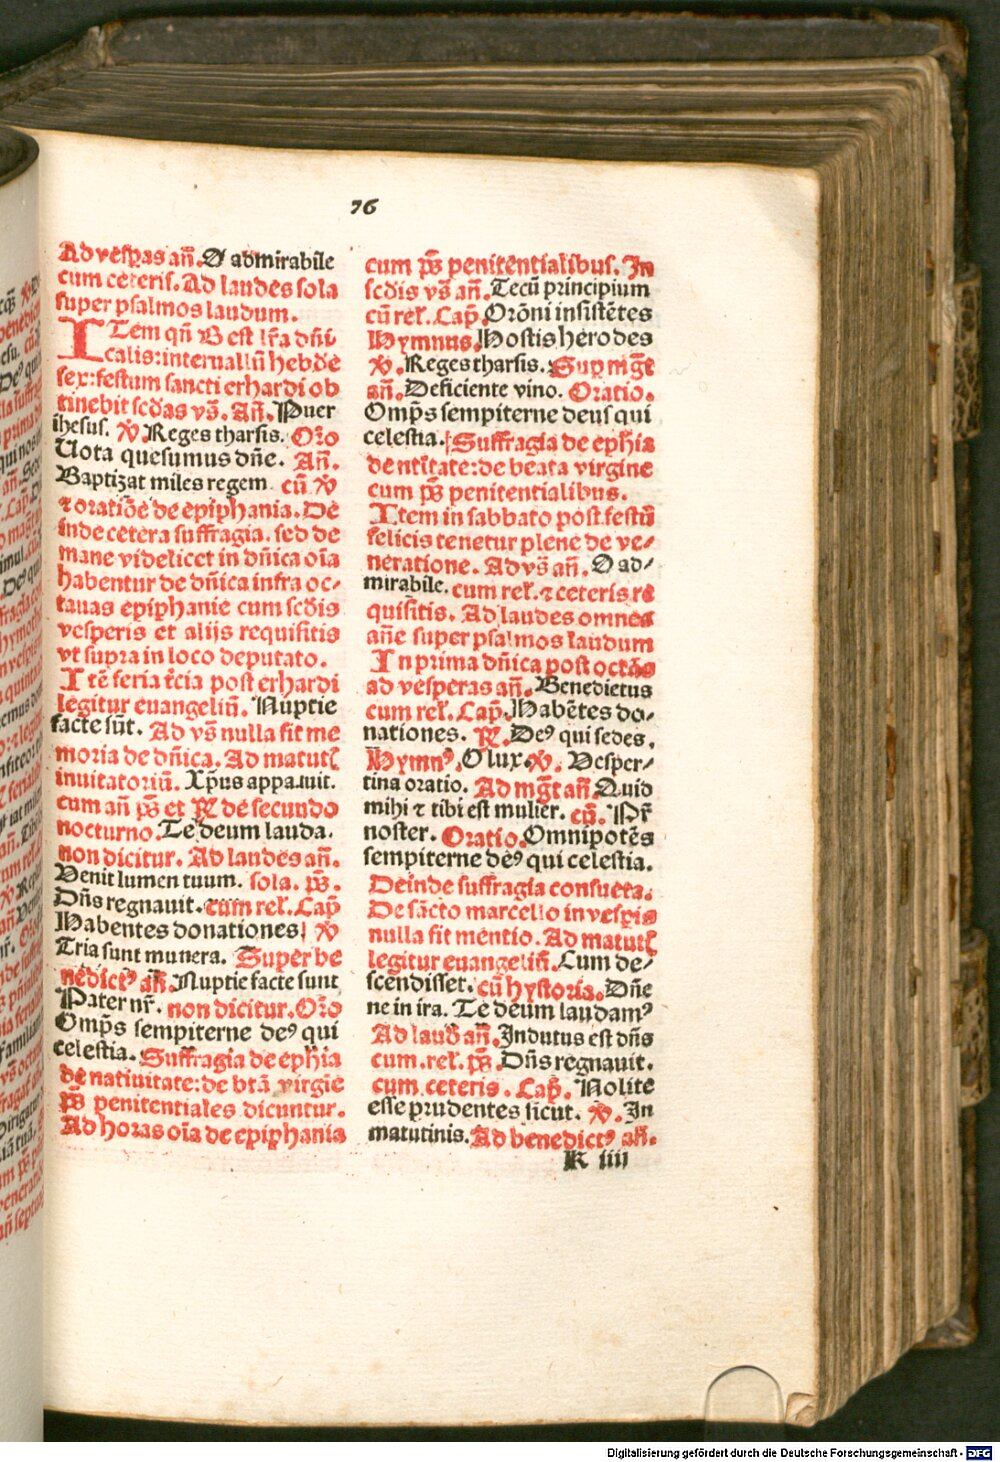 76
Ad vespas an̄. O admirabile
cum ceteris. Ad laudes sola
super psalmos laudum.
ITem qn̄ B est lr̄a dn̄i
calis: interuallū hebde
sex: festum sancti erhardi ob
tinebit scd̄as vs̄. An̄. Puer
ihesus. ℣. Reges tharsis. Or̄o
Uota quesumus dn̄e. An̄.
Baptizat miles regem cū ℣
⁊ oratiōe de epiphania. De
inde cetera suffragia. sed de
mane videlicet in dn̄ica oīa
habentur de dn̄ica infra oc⸗
tauas epiphanie cum scd̄is
vesperis et alijs requisitis
vt supra in loco deputato.
Itē feria t̄cia post erhardi
legitur euangeliū. Nuptie
facte sūt. Ad vs̄ nulla fit me
moria de dn̄ica. Ad matutī
inuitatoriū. Xp̄us apparuit.
cum an̄ ps̄ et ℟ de secundo
nocturno. Te deum lauda.
non dicitur. Ad laudes an̄.
Venit lumen tuum. sola. ps̄.
Dn̄s regnauit. cum rel̄. Cap̄
Habentes donationes. ℣
Tria sunt munera. Super be
nedictꝰ an̄. Nuptie facte sunt
Pater nr̄. non dicitur. Or̄o
Omp̄s sempiterne deꝰ qui
celestia. Suffragia de ep̄hia
de natiuitate: de btā virgīe
ps̄ penitentiales dicuntur.
Ad horas oīa de epiphania
cum ps̄ penitentialibus. In
scd̄is vs̄ an̄. Tecū principium
cū rel̄. Cap̄. Orōni insistētes
Hymnus. Hostis herodes
℣. Reges tharsis. Sup mḡt
an̄. Deficiente vino. Oratio.
Omp̄s sempiterne deus qui
celestia. Suffragia de ep̄hia
de ntītate: de beata virgine
cum ps̄ penitentialibus.
Item in sabbato post festū
felicis tenetur plene de ve⸗
neratione. Ad vs̄ an̄. O ad⸗
mirabile. cum rel̄. ⁊ ceteris re
quisitis. Ad laudes omnes
an̄e super psalmos laudum
In prima dn̄ica post octās
ad vesperas an̄. Benedictus
cum rel̄. Cap̄. Habētes do⸗
nationes. ℟. Deꝰ qui sedes.
Hymnꝰ. O lux. ℣. Vesper⸗
tina oratio. Ad mḡt an̄. Quid
mihi ⁊ tibi est mulier. cū. Pr̄
noster. Oratio. Omnipotēs
sempiterne deꝰ qui celestia.
Deinde suffragia consueta.
De sācto marcello in vespis
nulla fit mentio. Ad matutī
legitur euangeliū. Cum de⸗
scendisset. cū hystoria. Dn̄e
ne in ira. Te deum laudamꝰ
Ad laud̄ an̄. Indutus est dn̄s
cum. rel̄. ps̄. Dn̄s regnauit.
cum ceteris. Cap̄. Nolite
esse prudentes sicut. ℣. In
matutinis. Ad benedictꝰ an̄.
K iiii
Digitalisierung gefördert durch die Deutsche Forschungsgemeinschaft - DFG